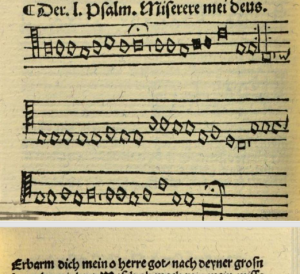 ¶ Der. l. Psalm. Miserere mei deus.
Erbarm dich mein o herre got/ nach deyner grosn